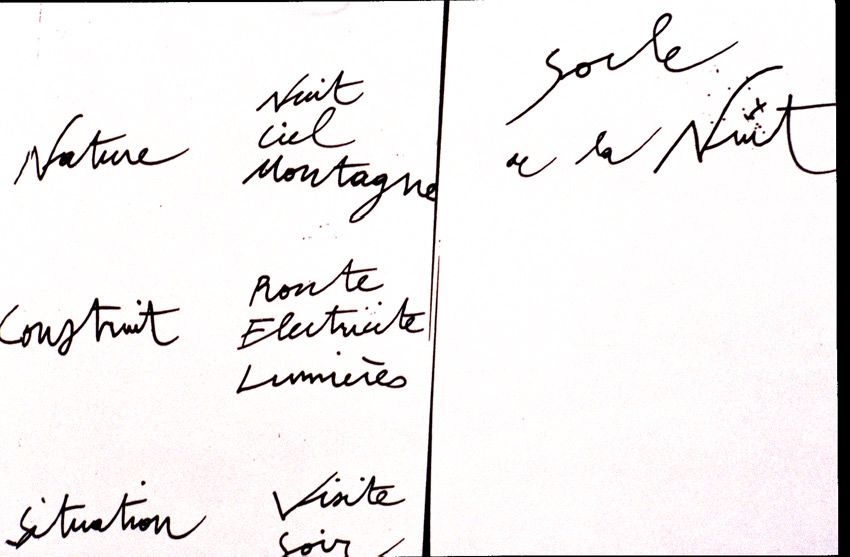 Nature
Nuit
Ciel
Montagne
Construit
Route
Electricite
Lumières
Situation
Visite
Soir
Socle
de la Nuit